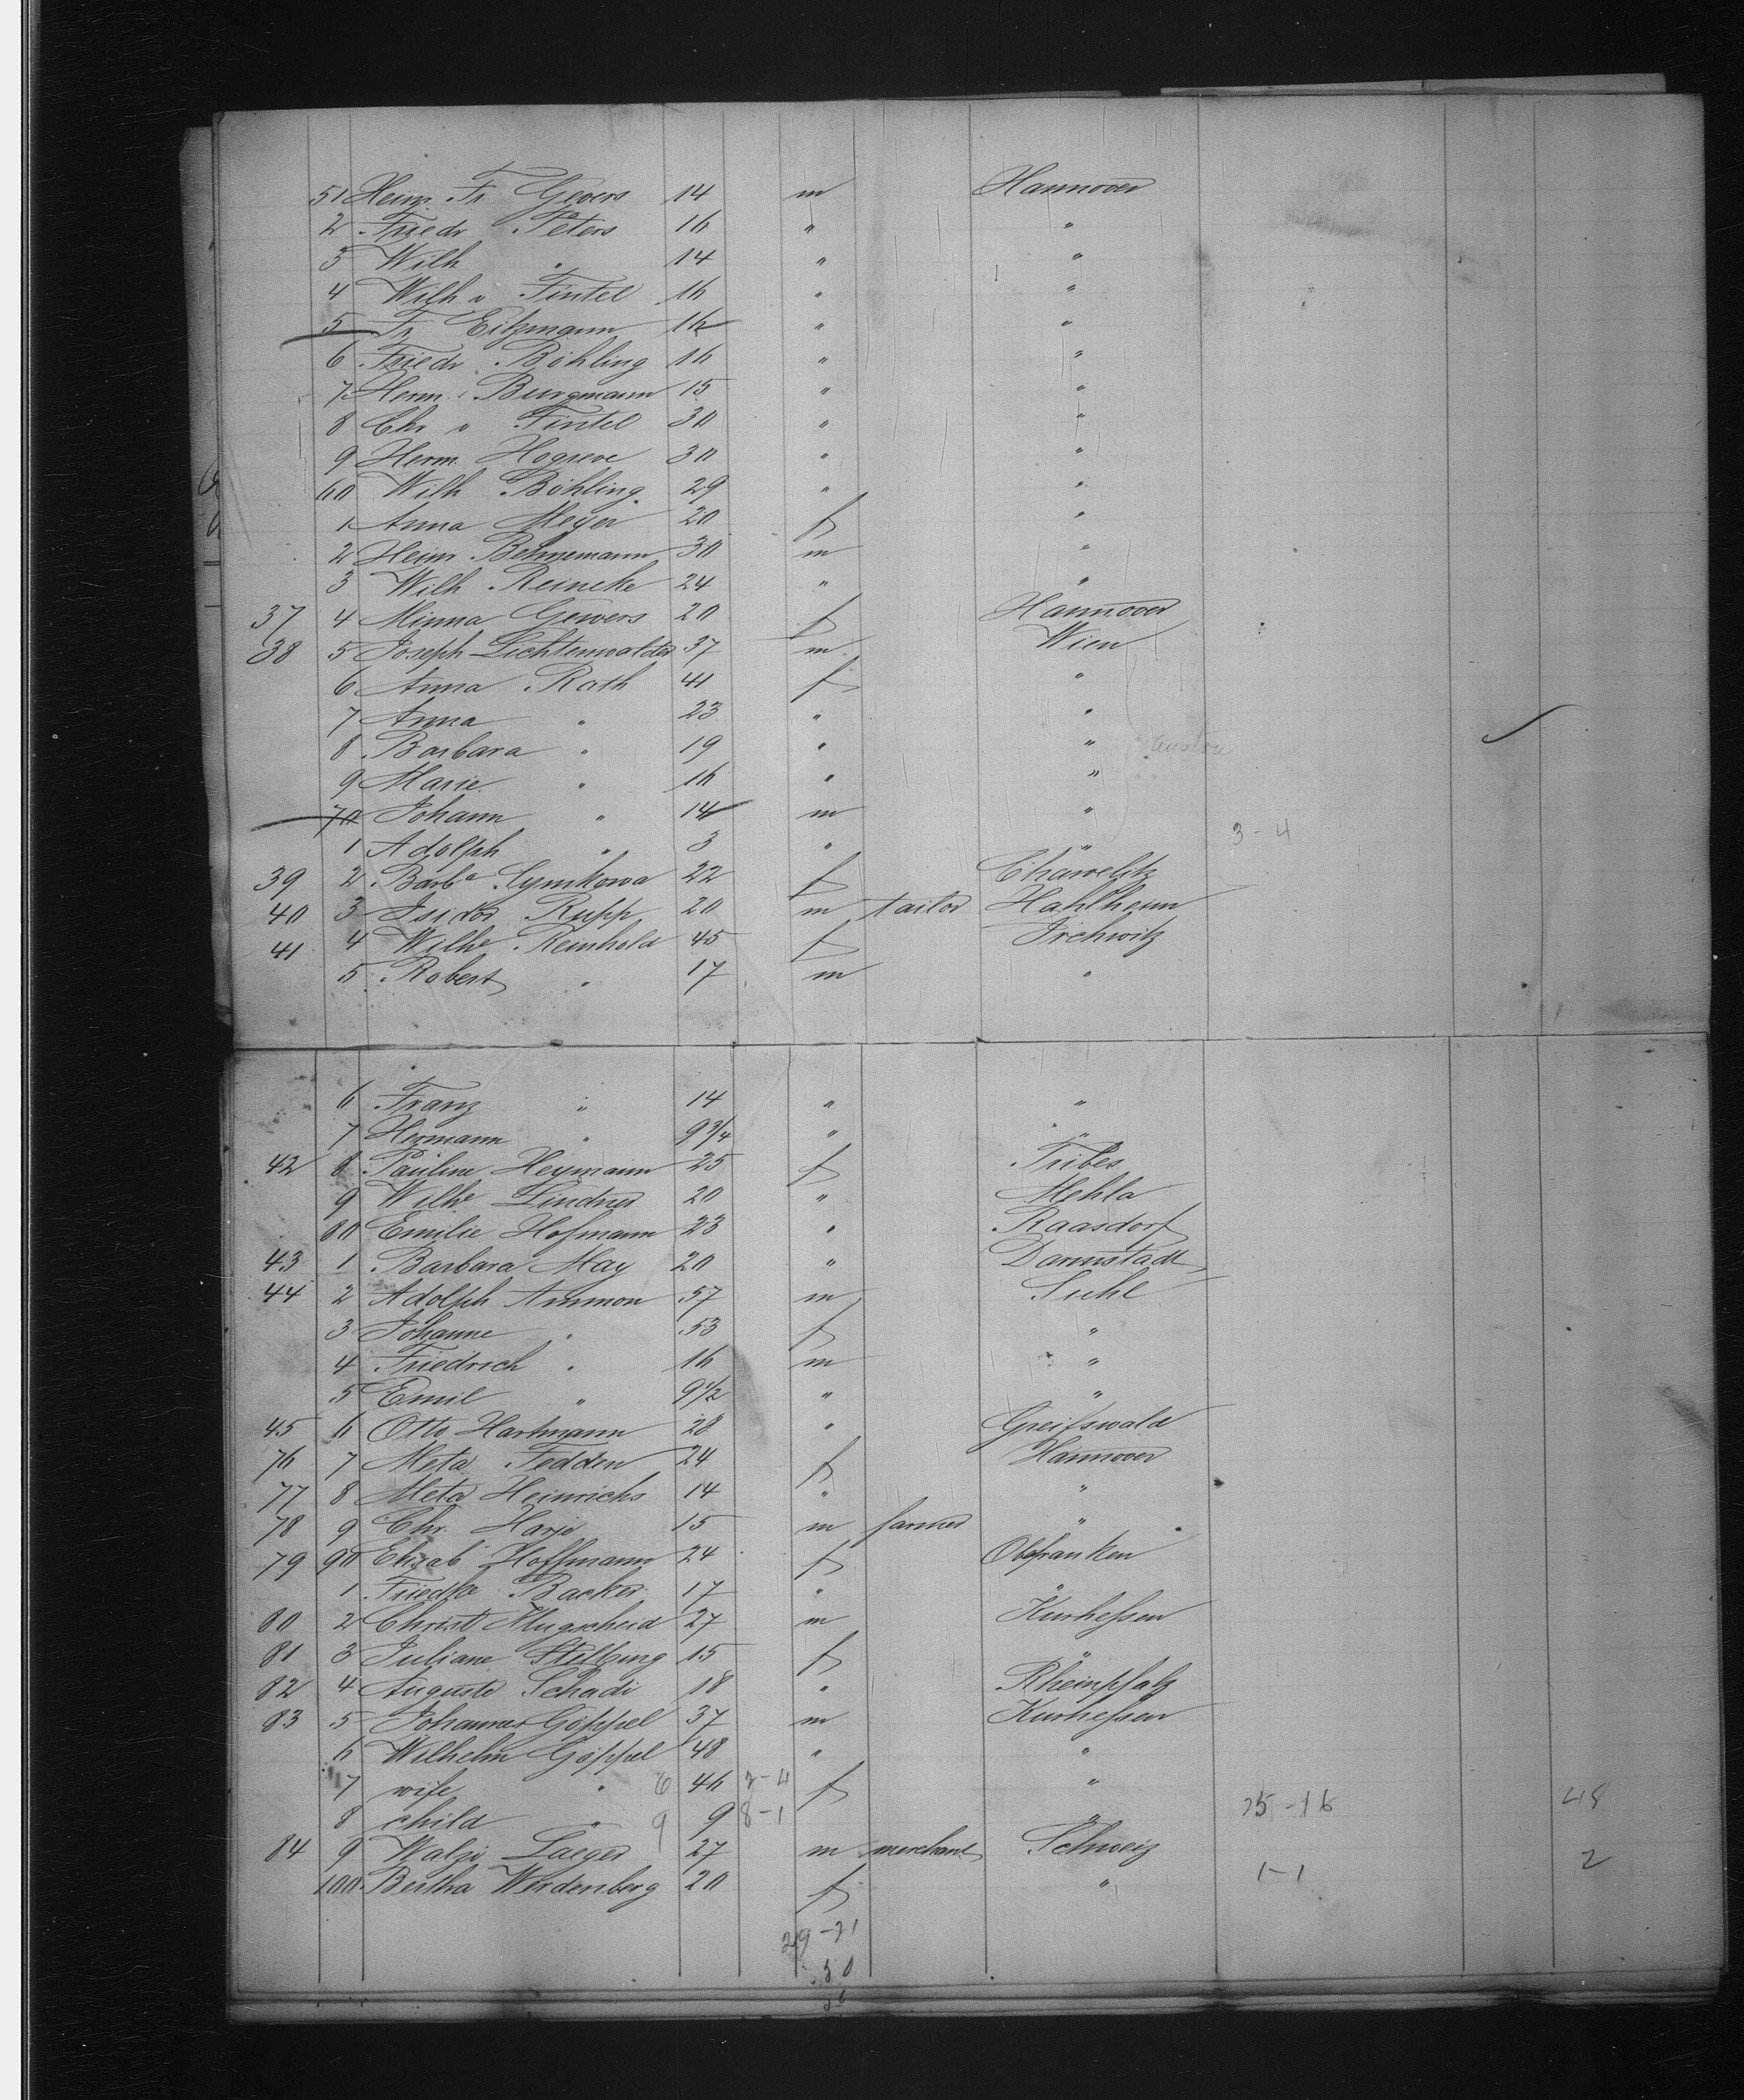 51 Heinr. Fr. Gevers 14 m Hannover
2 Friedr Peters 16 " "
3 Wilh " 14 " "
4 Wilh v Fintel 16 " "
5 Fr Eitzmann 16 " "
6 Friedr Böhling 16 " "
7 Herm. Burgmann 15 " "
8 Chr v Fintel 30 " "
9 Herm. Hogreve 30 " "
60 Wilh Böhling 29 " "
1 Anna Meyer 20 f "
2 Heinr Behnemann 30 m "
3 Wilh Reincke 24 " "
37 4 Minna Gewers 20 f Hannover
38 5 Joseph Lichtenwalder 37 m Wien
6 Anna Rath 41 f "
7 Anna " 23 " "
8 Barbara " 19 " "
9 Marie " 16 " "
70 Johann " 14 m "
1 Adolph " 3 " " 3-4
39 2 Barba Symkowa 22 f
40 3 Isidor Rupp 20 m tailor Hahlheim
41 4 Wilhe Reinhold 45 f Irchwitz
5 Robert " 17 m "
6 Franz " 14 " "
7 Hermann " 9 3/4 " "
42 8 Pauline Heymann 25 f Tribes
9 Wilhe Lindner 20 " Mehla
80 Emilie Hofmann 23 " Raasdorf
43 1 Barbara May 20 " Darmstadt
44 2 Adolph Ammon 57 m Suhl
3 Johanne " 53 f "
4 Friedrich " 16 m "
5 Emil " 9 1/2 " "
45 6 Otto Hartmann 28 " Greifswald
76 7 Meta Fedden 24 f Hannover
77 8 Meta Heinrichs 14 " "
78 9 Chr. Harje 15 m farmer "
79 90 Elisab Hoffmann 24 f Obfranken
1 Friedke Backer 17 " "
80 2 Christ Klugscheid 27 m Kurhessen
81 3 Juliane Stilbing 15 f "
82 4 Auguste Schadi 18 " Rheinpfalz
83 5 Johannes Göppel 37 m Kurhessen
6 Wilhelm Göppel 48 " "
7 wife " 6 46 2-4 f "
8 child " 9 9 8-1 " 25-16 48
84 9 Walzi Laeger 27 m merchant Schweiz
100 Bertha Werdenberg 20 f " 1-1 2
29-21
50